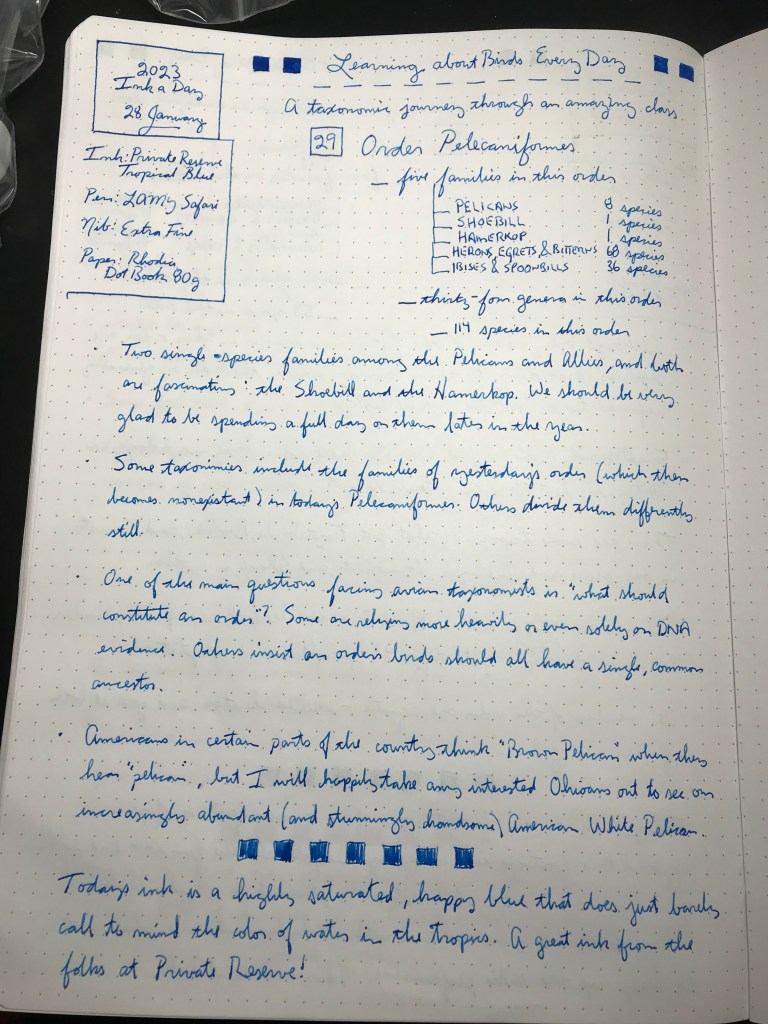 2023
Ink a Day
28 January
Ink: Private Reserve
Tropical Blue
Pen: LAMY Safari
Nib: Extra Fine
Paper: Rhodia
Dot Book 80g
Learning about Birds Every Day
A taxonomic journey through an amazing class
29 Order Pelecaniformes
— five families in this order
PELICANS 8 species
SHOEBILL 1 species
HAMERKOP 1 species
HERONS, EGRETS, & BITTERNS 68 species
IBISES & SPOONBILLS 36 species
— thirty-four genera in this order
— 114 species in this order
· Two single-species families among the Pelicans and Allies, and both
are fascinating: the Shoebill and the Hamerkop. We should be very
glad to be spending a full day on them later in the year.
· Some taxonimies include the families of yesterday's order (which then
becomes nonexistant) in today's Pelecaniformes. Others divide them differently
still.
· One of the main questions facing avian taxonomists is "what should
constitute an order"? Some are relying more heavily or even solely on DNA
evidence. Others insist an order's birds should all have a single, common
ancestor.
· Americans in certain parts of the country think "Brown Pelican" when they
hear "pelican", but I will happily take any interested Ohioans out to see our
increasingly abundant (and stunningly handsome) American White Pelican.
Today's ink is a highly saturated, happy blue that does just barely
call to mind the color of water in the tropics. A great ink from the
folks at Private Reserve!